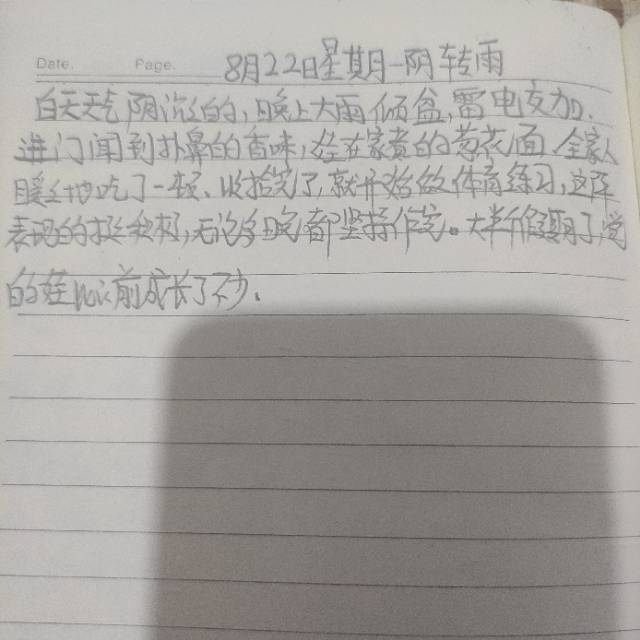 Date. Page. 8月22日星期一阴转雨
白天天气阴沉沉的,晚上大雨倾盆,雷电交加,
进门闻到扑鼻的香味,的 面,全家人
暖暖地吃了一顿、收拾完了,就开始做体育练习,这
表现的挺积极,无论多晚都坚持作完。大半个假期了,
的 比以前成长了不少。